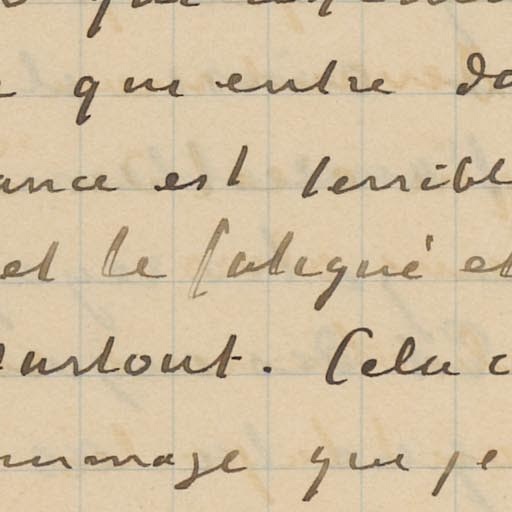 que
que entre da
ance est terribl
et le fatigué et
surtout. Cela c
ommage que je